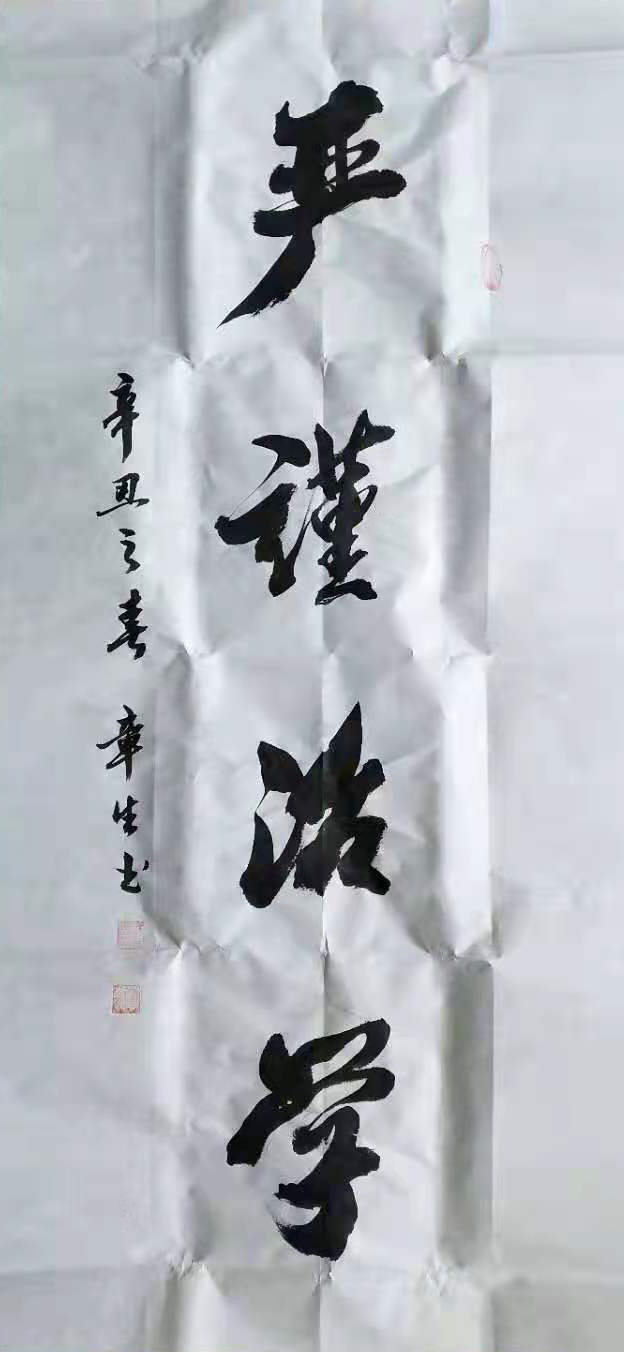 严谨治学
辛丑之春 章生书